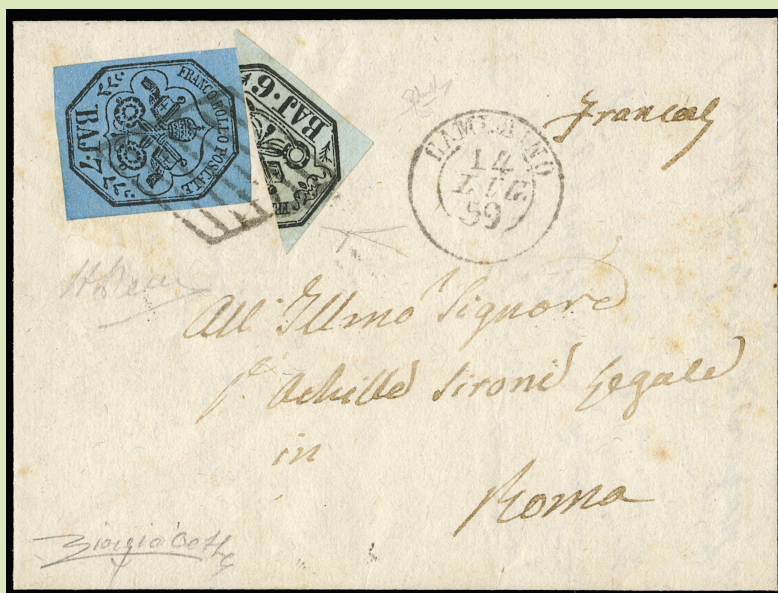 FRANCO BOLLO POSTALE
BAJ·7
BAJ·6
FR
CAMERINO
14
LUG
59
Franca
All' Illmo Signore
Achille Sironi Legale
in
Roma